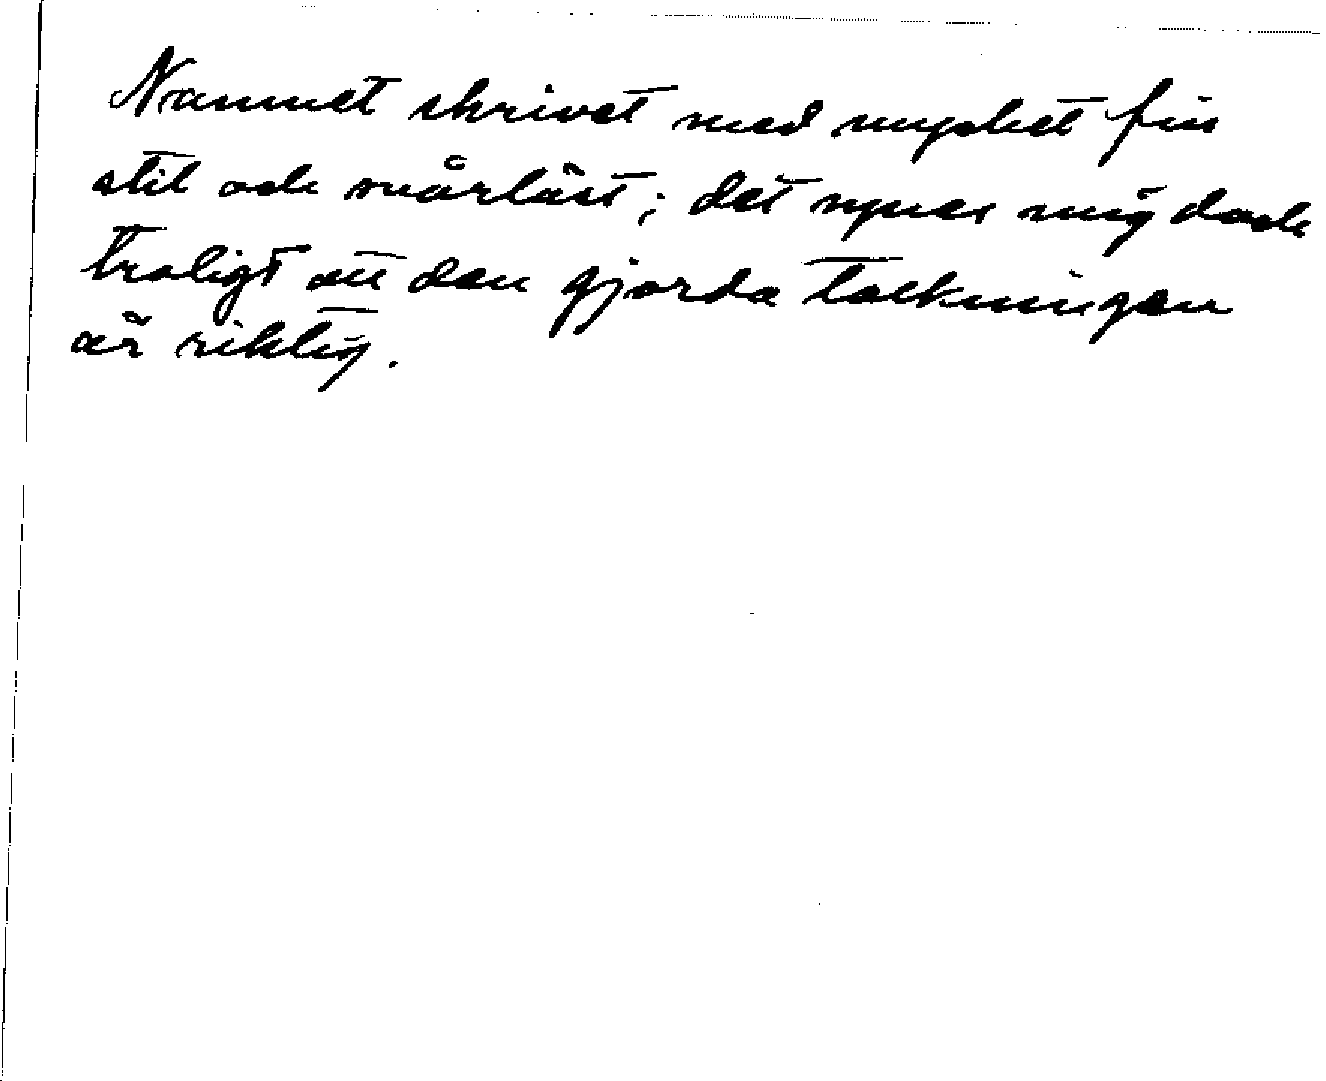 Namnet skrivet med mycket fin
stil och svårläst; det synes mig dock
troligt att den gjorda tolkningen
är riktig.